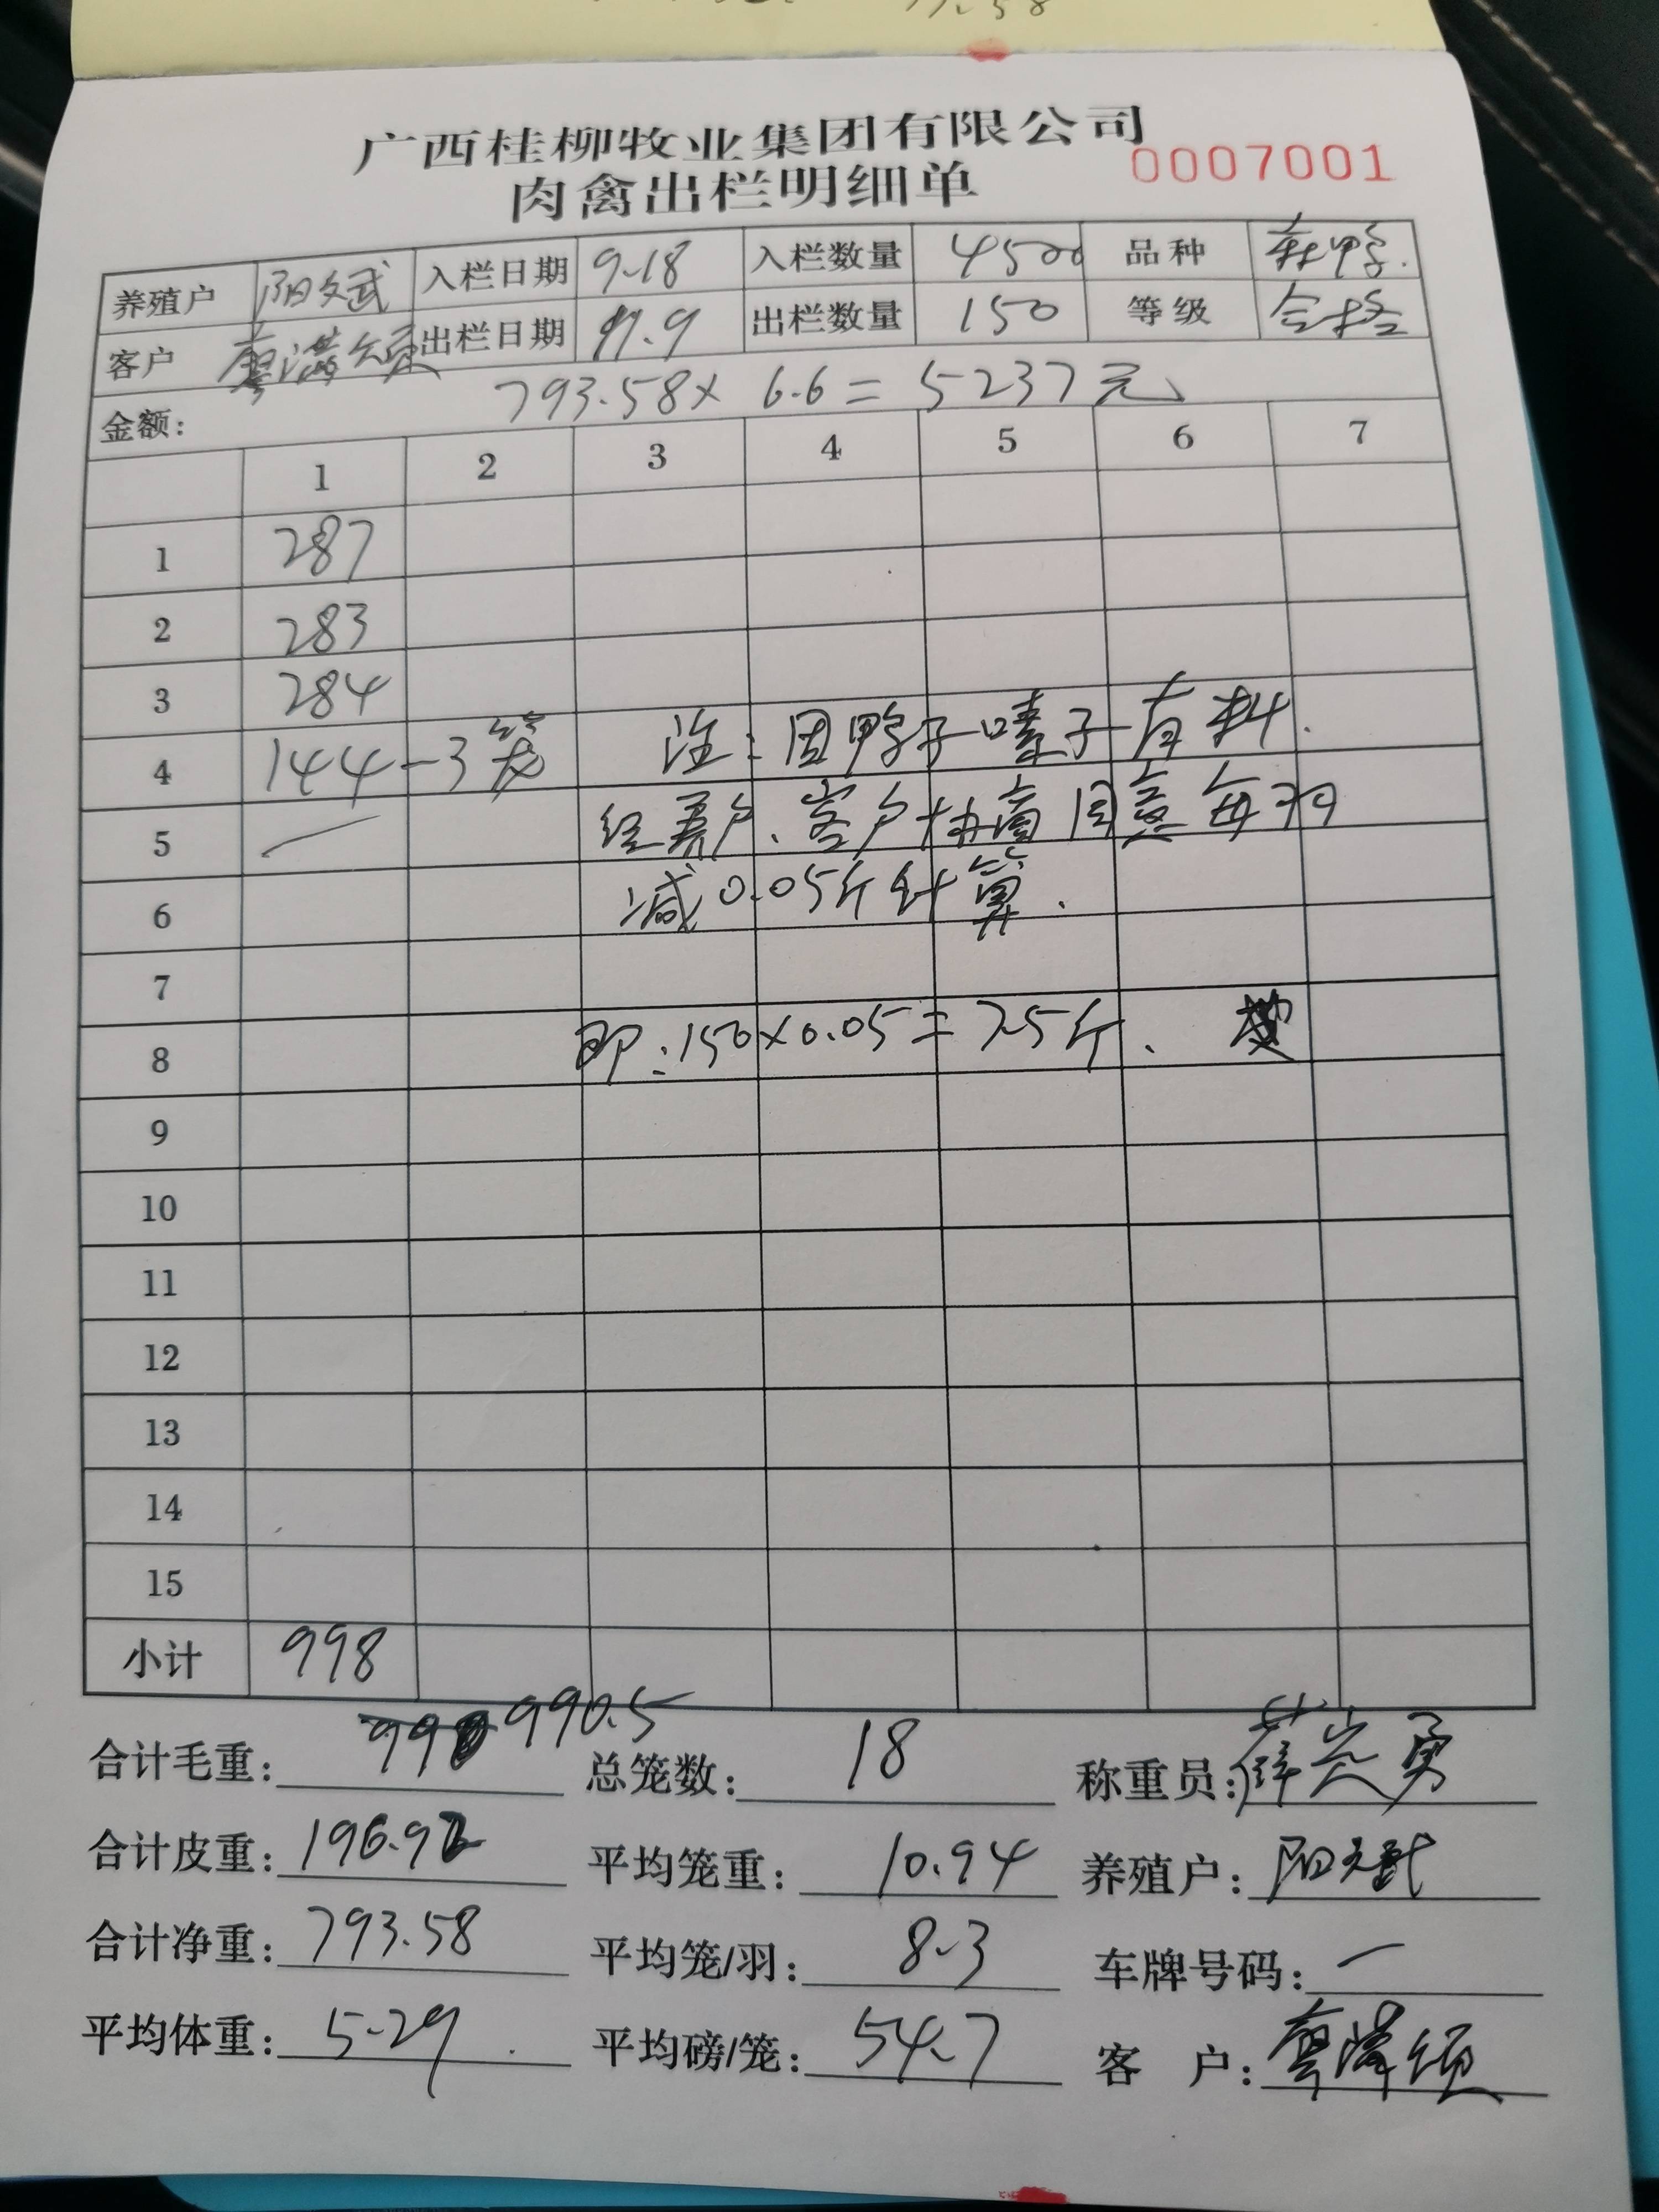 广西桂柳牧业集团有限公司
肉禽出栏明细单 0007001
养殖户 阳文武 入栏日期 9-18 入栏数量 4500 品种 鸭
客户 廖 出栏日期 11.9 出栏数量 150 等级 合格
金额: 793.58× 6.6= 5237元
1 2 3 4 5 6 7
1 287
2 283
3 284
4 144-3笼 注:因鸭子嗉子有料.
5 经养户、客户协商同意每羽
6 减0.05斤计算.
7
8 即:150×0.05=7.5斤.
9
10
11
12
13
14
15
小计 998
合计毛重: 990.5 总笼数: 18 称重员: 薛 勇
合计皮重: 196.92 平均笼重: 10.94 养殖户: 阳文武
合计净重: 793.58 平均笼/羽: 8-3 车牌号码: 一
平均体重: 5-29 平均磅/笼: 54.7 客 户: 廖